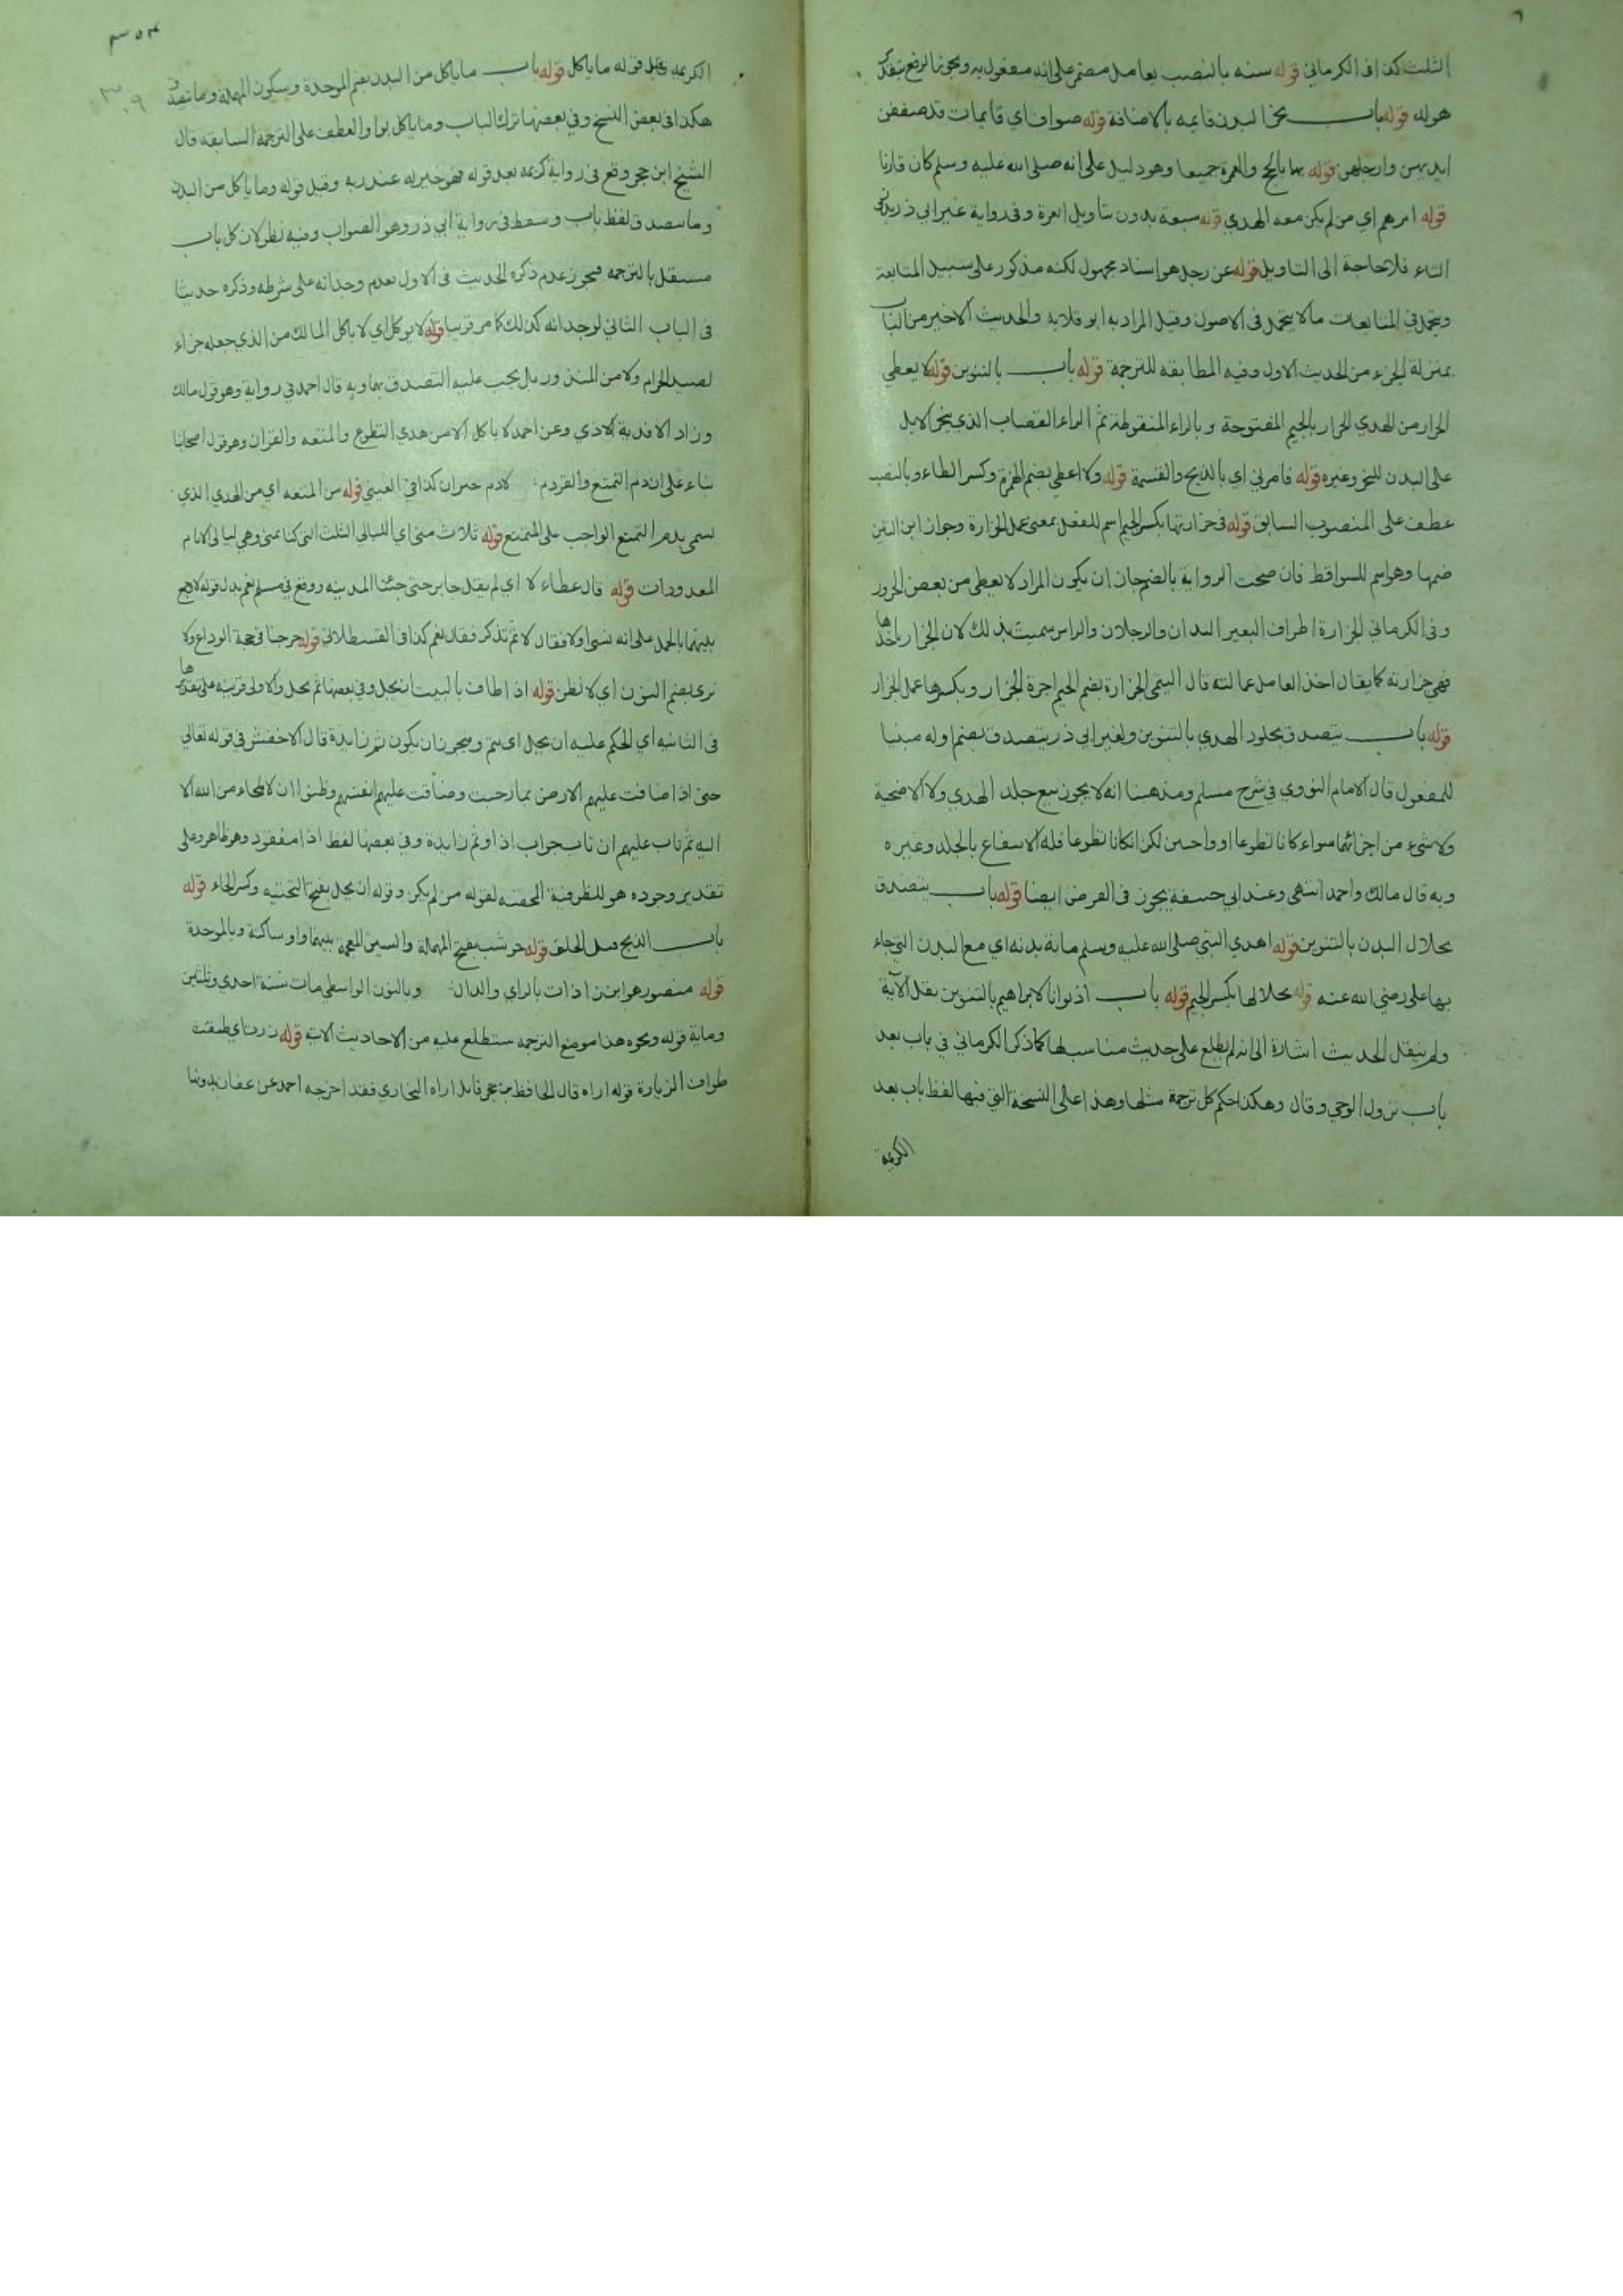 الثلث كذا في الكرماني قوله سنه بالنصب بعامل مضمر على انه مفعول به ويجوز الرفع بتقدير
هوله قوله باب نحر البدن قايمه بالاضافة قوله صواف اي قايمات قد صففن
ايديهن وارجلهن قوله بهما بالحج والعمرة جميعا وهو دليل على انه صلى الله عليه وسلم كان قارنا
قوله امرهم اي من لم يكن معه الهدي قوله سبعة بدون تاويل ابعرة وفي رواية غير ابي ذر
التاء فلا حاجة الى التاويل قوله عن رجل هو اسناد مجهول لكنه مذكور على سبيل المتابعة
ويحتمل في المتابعات ما لا يحتمل في الاصول وقيل المراد به ابو قلابة والحديث الاخير من الباب
بمنزلة الجزء من الحديث الاول وفيه المطابقه للترجمة قوله باب بالتنوين قوله لا يعطي
الجزار من الهدي الجزار بالجيم المفتوحة وبالزاء المنقوطة ثم الراء القصاب الذي ينحر الابل
على البدن للنحر وغيره قوله فامرني اي بالذبح والقسمة قوله ولا اعطي بضم الهمزة وكسر الطاء وبالنصب
عطف على المنصوب السابق قوله في جزارتها بكسر الجيم اسم للفعل بمعنى عمل الجزارة وجوز ابن التين
ضمها وهو اسم للسواقط فان صحت الرواية بالضم جاز ان يكون المراد لا يعطي من بعض الجزور
وفي الكرماني الجزارة اطراف البعير اليدان والرجلان والراس سميت بذلك لان الجزار ياخذها
فهي جزارته كما يقال اخذ العامل عمالته قال التيمي الجزارة بضم الجيم اجرة الجزار وبكسرها عمل الجزار
قوله باب يتصدق بجلود الهدي بالتنوين ولغير ابي ذر يتصدق بضم اوله مبنيا
للمفعول قال الامام النووي في شرح مسلم ومذهبنا انه لا يجوز بيع جلد الهدي ولا الاضحية
ولا شيء من اجزائهما سواء كانا تطوعا او واجبين لكن ان كانا تطوعا فله الانتفاع بالجلد وغيره
وبه قال مالك واحمد انتهى وعند ابي حنيفة يجوز في الفرض ايضا قوله باب يتصدق
بجلال البدن بالتنوين قوله اهدي النبي صلى الله عليه وسلم مائة بدنه اي مع البدن التي جاء
بها علي رضي الله عنه قوله بجلالها بكسر الجيم قوله باب اذ بوانا لابراهيم بالتنوين بنقل الآية
ولم ينقل الحديث اشارة الى انه لم يطلع على حديث مناسب لها كما ذكر الكرماني في باب بعد
باب نزول الوحي وقال وهكذا حكم كل ترجمة مثلها وهذا على النسخة التي فيها لفظ باب بعد
الكريمة
٣٥٣
٣٠٩
الكريمة قبل قوله ما ياكل قوله باب ما ياكل من البدن بضم الموحدة وسكون المهملة وما يتصدق
هكذا في بعض النسخ وفي بعضها ترك الباب وما ياكل بواو العطف على الترجمة السابقه قال
الشيخ ابن حجر وقع في رواية كريمه بعد قوله فهو خير له عند ربه وقبل قوله وما ياكل من البدن
وما يتصدق لفظ باب وسقط في رواية ابي ذر وهو الصواب وفيه نظر لان كل باب
مستقل بالترجمه فيجوز عدم ذكره الحديث في الاول لعدم وجدانه على شرطه وذكره حديثا
في الباب الثاني لوجدانه كذلك كما مر قريبا قوله لا يوكل اي لا ياكل المالك من الذي جعله جزاء
لصيد الحرام ولا من المنذور بل يجب عليه التصدق بهما وبه قال احمد في رواية وهو قول مالك
وزاد الا فدية الاذي وعن احمد لا ياكل الا من هدي التطوع والمتعه والقران وهو قول اصحابنا
بناء على ان دم التمتع والقران دم لا دم جبران كذا في العيني قوله من المتعه اي من الهدي الذي
يسمى بدم التمتع الواجب على المتمتع قوله ثلاث منى اي الليالي الثلث التي كنا بمنى وهي ليالي الايام
المعدودات قوله قال عطاء لا اي لم يقل جابر حتى جئنا المدينه ووقع في مسلم نعم بدل قوله لا جمع
بينهما بالحمل على انه نسي اولا فقال لا ثم تذكر فقال نعم كذا في القسطلاني قوله خرجنا في حجة الوداع ولا
نرى بضم النون اي لا نظن قوله اذا طاف بالبيت ان يحل وفي بعضها ثم يحل والاولى قرينه على تقديرها
في الثانيه اي الحكم عليه ان يحل اي يتم ويجوز ان يكون ثم زايدة قال الاخفش في قوله تعالى
حتى اذا ضاقت عليهم الارض بما رحبت وضاقت عليهم انفسهم وظنوا ان لا ملجاء من الله الا
اليه ثم تاب عليهم ان تاب جواب اذا وثم زايدة وفي بعضها لفظ اذا مفقود وهو ظاهر وعلى
تقدير وجوده هو للظرفية المحضه لقوله من لم يكن وقوله ان يحل بفتح التحتيه وكسر الحاء قوله
باب الذبح قبل الحلق قوله حوشب بفتح المهملة والشين المعجمة بينهما واو ساكنة وبالموحدة
قوله منصور هو ابن زاذان بالزاي والذال وبالنون الواسطي مات سنة احدي وثلثين
وماية قوله ونحوه هذا موضع الترجمه ستطلع عليه من الاحاديث الاتيه قوله زرت اي طفت
طواف الزيارة قوله اراه قال الحافظ بن حجر قايل اراه البخاري فقد اخرجه احمد عن عفان بدونها